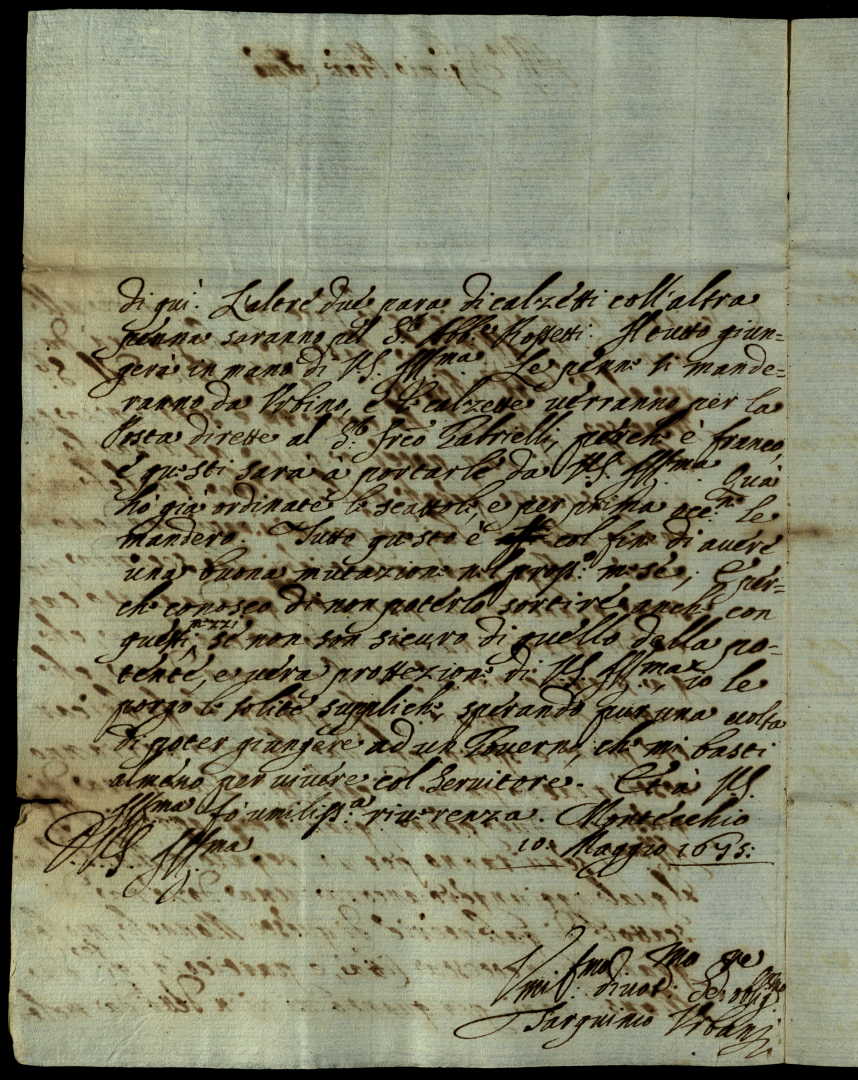 di qui. L'altre due para di calzetti coll'altra
penna saranno pel S.r Abb.e Rossetti. Il tutto giun-
gerà in mano di V.S. Ill.ma Le penne si mande-
ranno da Urbino, e le calzette verranno per la
Posta dirette al S.r Fran.co Gabrielli, perche è franco,
e questi sarà à portarle da V.S. Ill.ma Quà
hò già ordinate le scattole, e per prima occ.ne le
manderò. Tutto questo è col fine di avere
una buona mutazione nel pross.o mese; E per-
che conosco di non poterlo sortire anche con
questi mezzi, se non son sicuro di quello della po-
tente, e vera prottezione di V.S. Ill.ma, io le
porgo le solite suppliche, sperando pur una volta
di poter giungere ad un Governo, che mi basti
almeno per vivere col Servitore. Et à V.S.
Ill.ma fò umiliss.a riverenza. Montecchio
D.V.S. Ill.ma 10: Maggio 1695:
Umil.mo divot.mo Se.re obblig.mo
Tarquinio Urbani